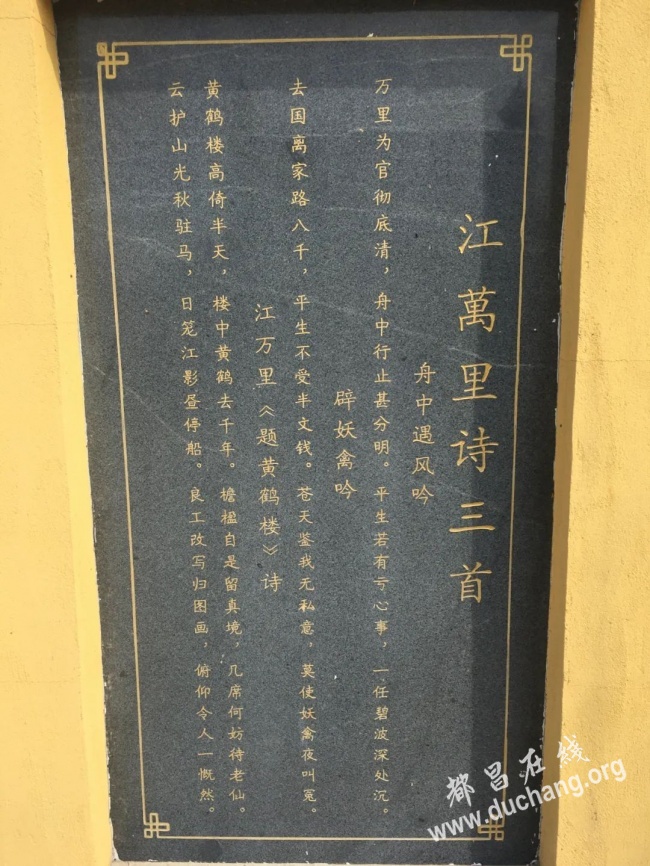 江萬里诗三首
舟中遇风吟
万里为官彻底清，舟中行止甚分明。平生若有亏心事，一任碧波深处沉。
辟妖禽吟
去国离家路八千，平生不受半文钱。苍天鉴我无私意，莫使妖禽夜叫冤。
江万里《题黄鹤楼》诗
黄鹤楼高倚半天，楼中黄鹤去千年。檐楹自是留真境，几席何妨待老仙。
云护山光秋驻马，日笼江影昼停船。良工改写归图画，俯仰令人一慨然。
都昌在线
www.duchang.org